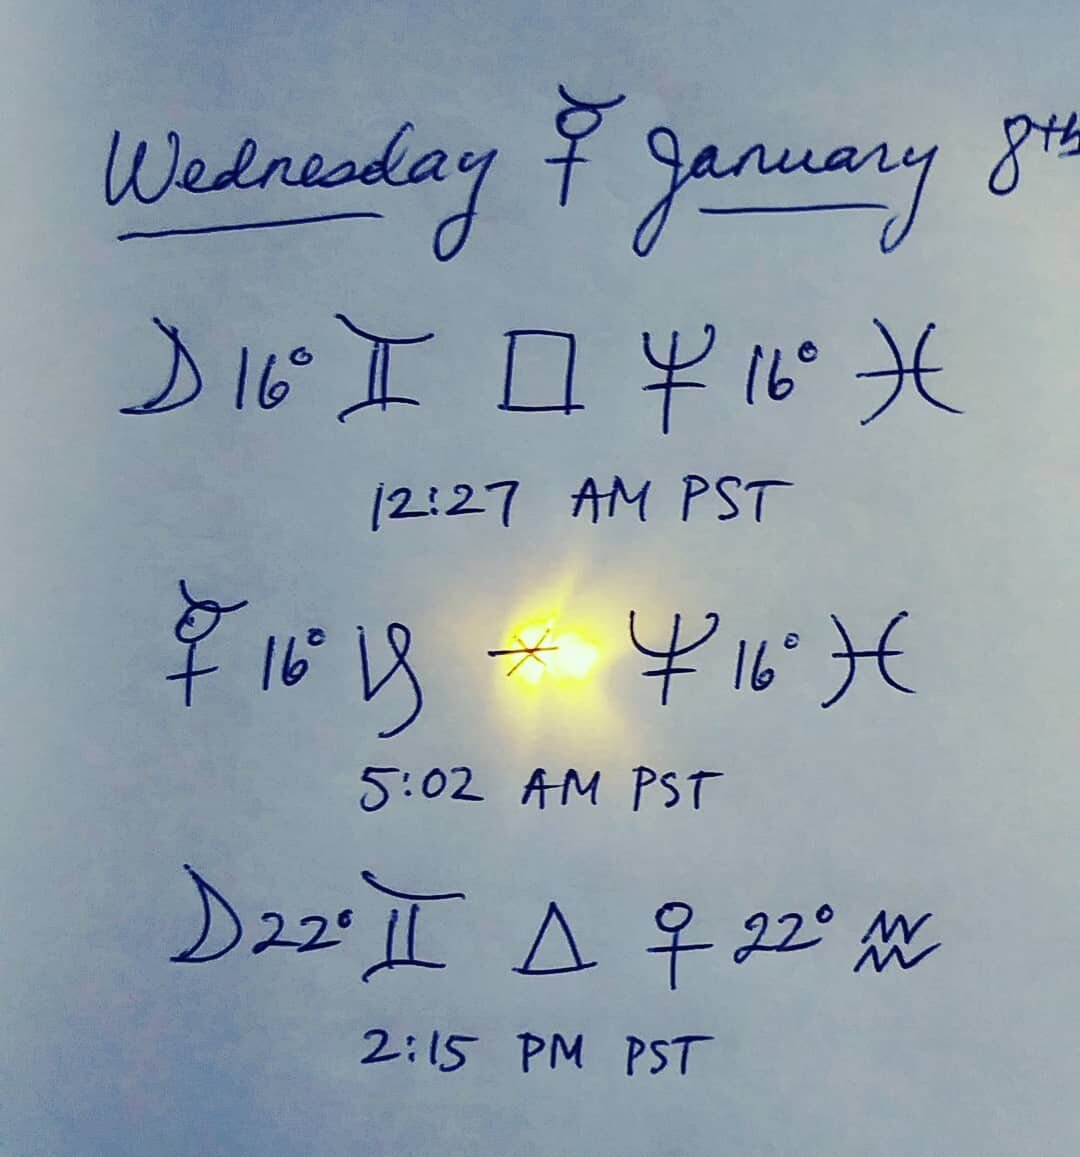 Wednesday ☿ January 8th
☽ 16° ♊ □ ♆ 16° ♓
12:27 AM PST
☿ 16° ♑ ⚹ ♆ 16° ♓
5:02 AM PST
☽ 22° ♊ △ ♀ 22° ♒
2:15 PM PST